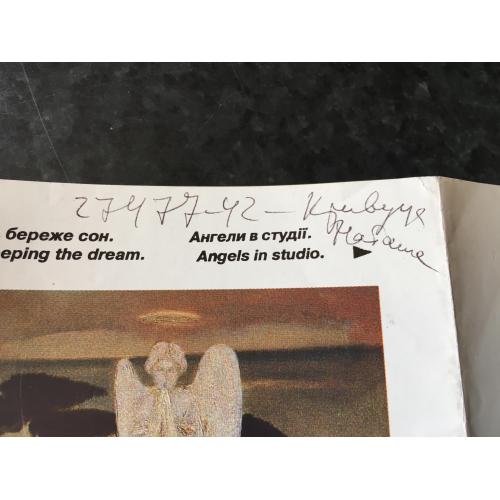 27477-42 - Кривуца
Наташа
береже сон.
eping the dream.
Ангели в студії.
Angels in studio.